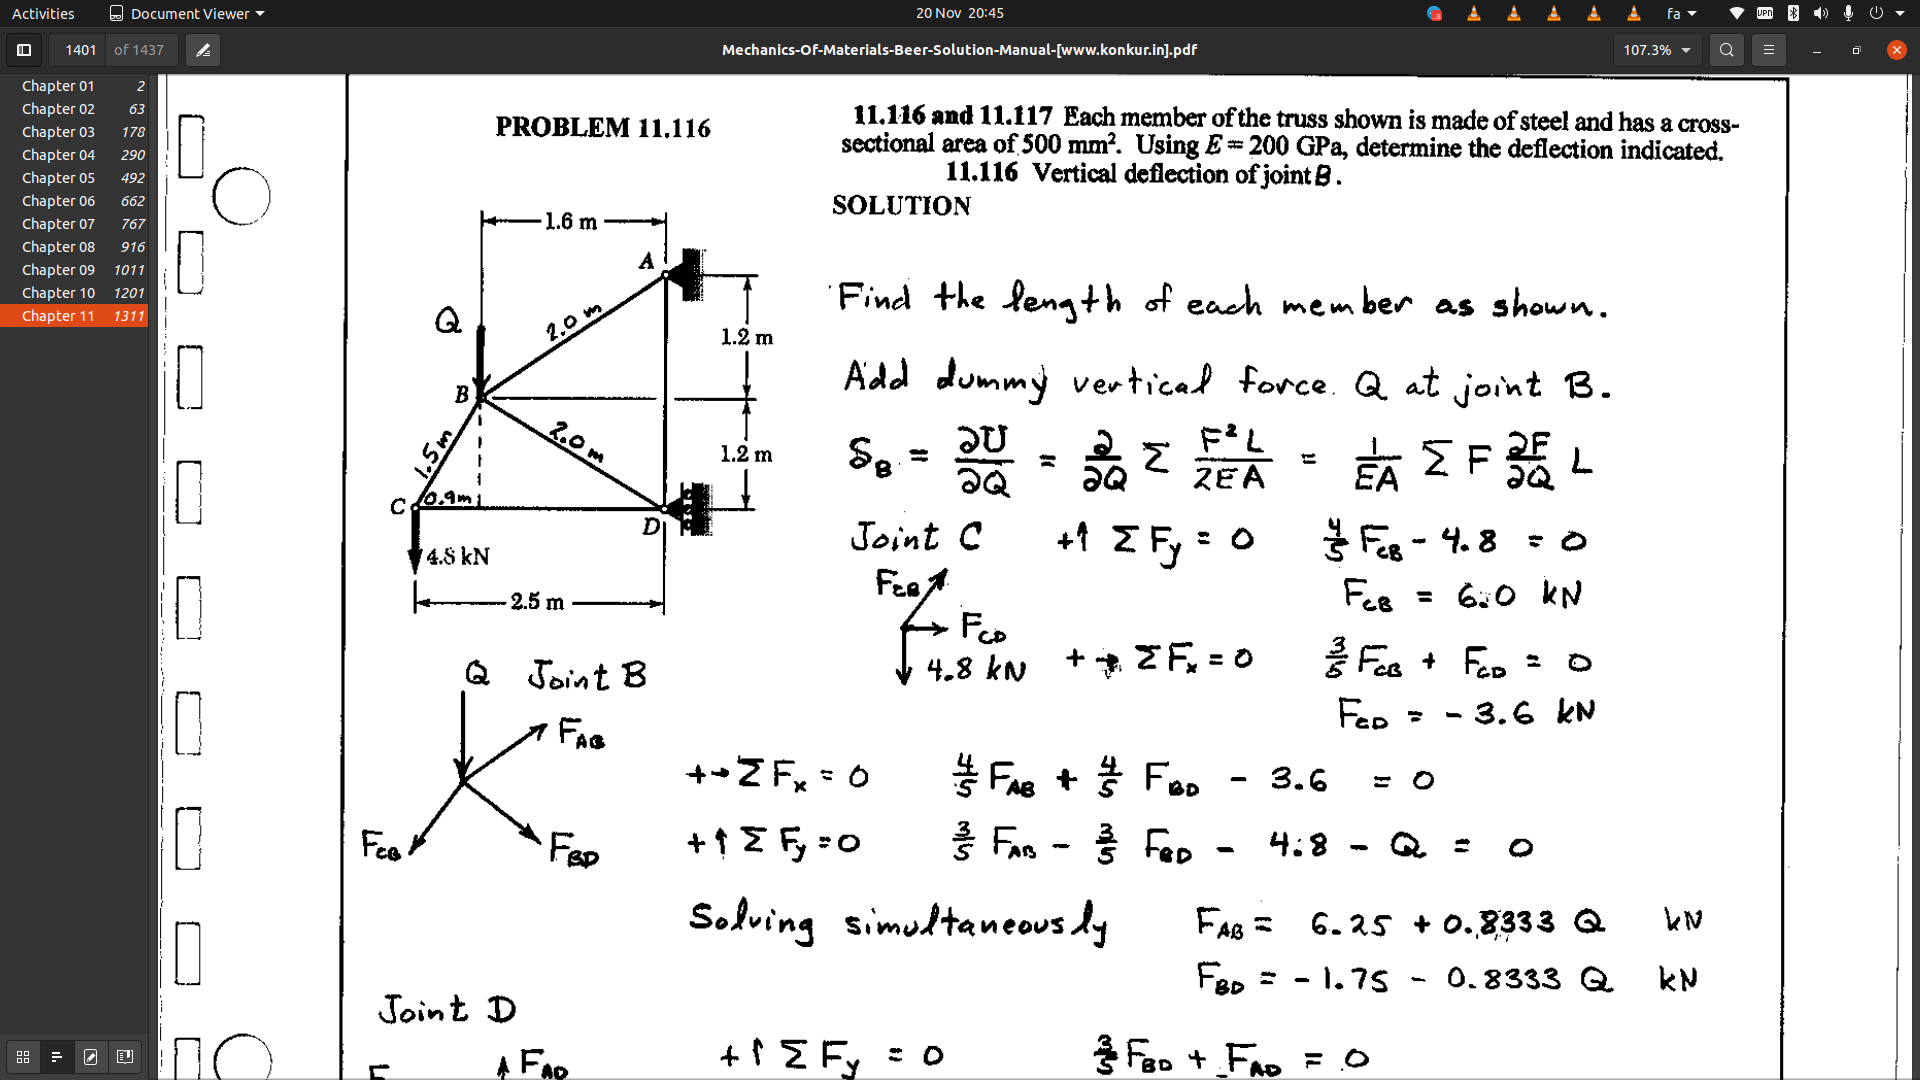 Activities Document Viewer 20 Nov 20:45 fa VPN
1401 of 1437 Mechanics-Of-Materials-Beer-Solution-Manual-[www.konkur.in].pdf 107.3%
Chapter 01 2
Chapter 02 63
Chapter 03 178
Chapter 04 290
Chapter 05 492
Chapter 06 662
Chapter 07 767
Chapter 08 916
Chapter 09 1011
Chapter 10 1201
Chapter 11 1311
PROBLEM 11.116
11.116 and 11.117 Each member of the truss shown is made of steel and has a cross-
sectional area of 500 mm². Using E = 200 GPa, determine the deflection indicated.
11.116 Vertical deflection of joint B.
SOLUTION
1.6 m
A
Q
2.0 m
1.2 m
B
1.5 m
2.0 m
1.2 m
C
0.9m
D
4.8 kN
2.5 m
Find the length of each member as shown.
Add dummy vertical force Q at joint B.
δ_B = ∂U/∂Q = ∂/∂Q Σ F²L/2EA = 1/EA Σ F ∂F/∂Q L
Joint C +↑ ΣFy = 0 4/5 F_CB - 4.8 = 0
F_CB
F_CB = 6.0 kN
F_CD
4.8 kN
+→ ΣFx = 0 3/5 F_CB + F_CD = 0
F_CD = -3.6 kN
Q Joint B
F_AB
F_CB
F_BD
+→ ΣFx = 0 4/5 F_AB + 4/5 F_BD - 3.6 = 0
+↑ ΣFy = 0 3/5 F_AB - 3/5 F_BD - 4.8 - Q = 0
Solving simultaneously F_AB = 6.25 + 0.8333 Q kN
F_BD = -1.75 - 0.8333 Q kN
Joint D
F_AD
+↑ ΣFy = 0 3/5 F_BD + F_AD = 0